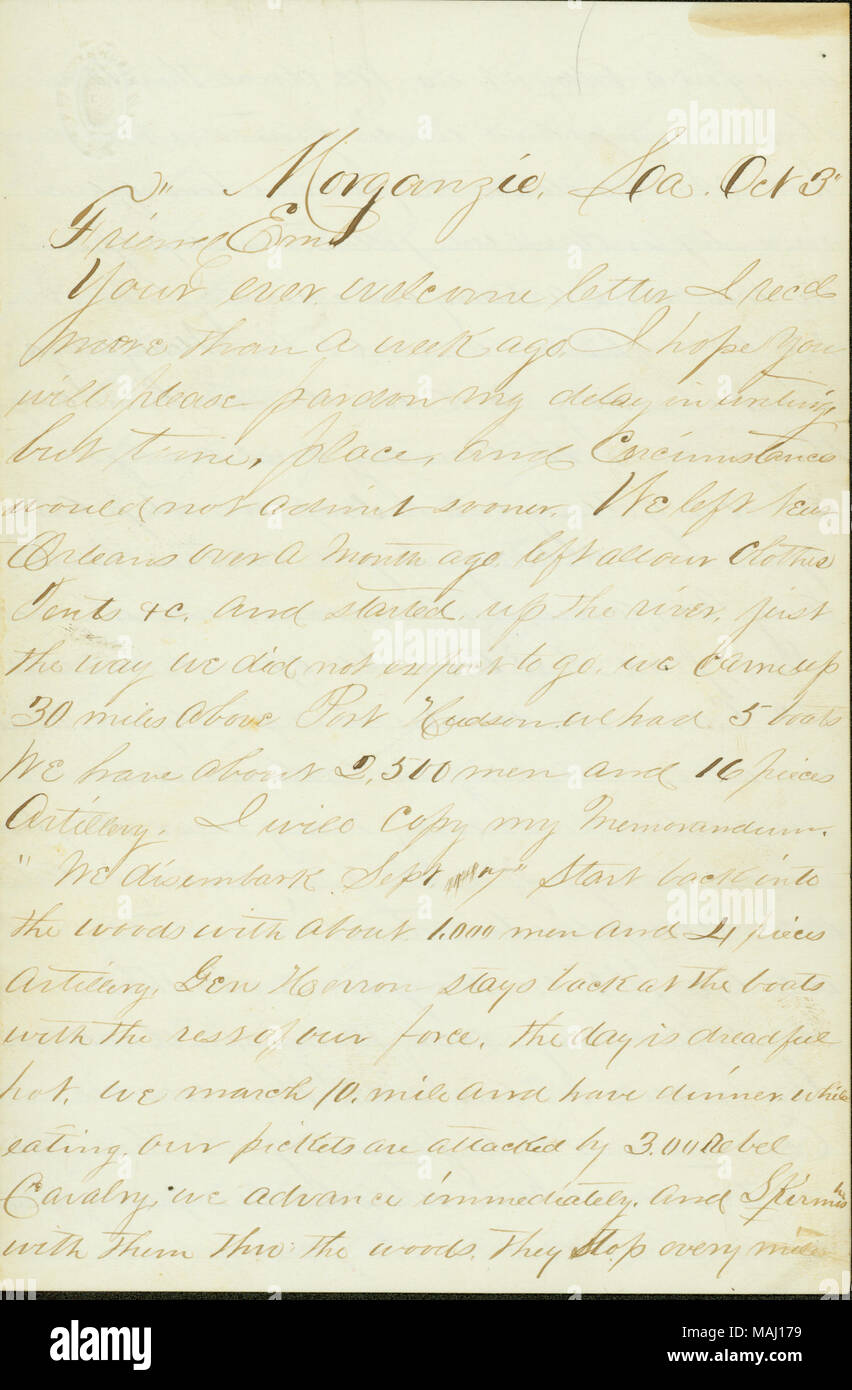 Morganzie. La. Oct 3"
Friend Em
Your ever welcome letter I recd
more than a week ago. I hope you
will please pardon my delay in writing,
but time, place, and Circumstances
would not admit sooner. We left New
Orleans over a month ago left all our Clothes
Tents &c. and started, up the river, just
the way we did not expect to go. we came up
30 miles above Port Hudson we had 5 boats
We have about 2,500 men and 16 pieces
Artillery. I will Copy my Memorandum.
"We disembark Sept 7" Start back into
the woods with about 1.000 men and 4 pieces
Artillery. Gen Herron stays back at the boats
with the rest of our force. the day is dreadful
hot. we march 10. mile and have dinner. while
eating. our pickets are attacked by 3.00 Rebel
Cavalry, we advance immediately. and Skirmish
with them thro' the woods. they stop every mile
alamy stock photo
alamy
Image ID: MAJ179
www.alamy.com